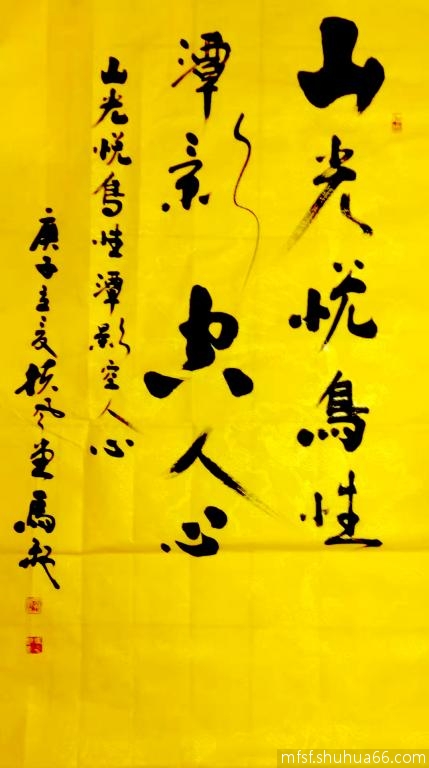 山光悦鳥性
潭影空人心
山光悦鳥性潭影空人心
庚子立夏扶风堂馬
mfsf.shuhua66.com